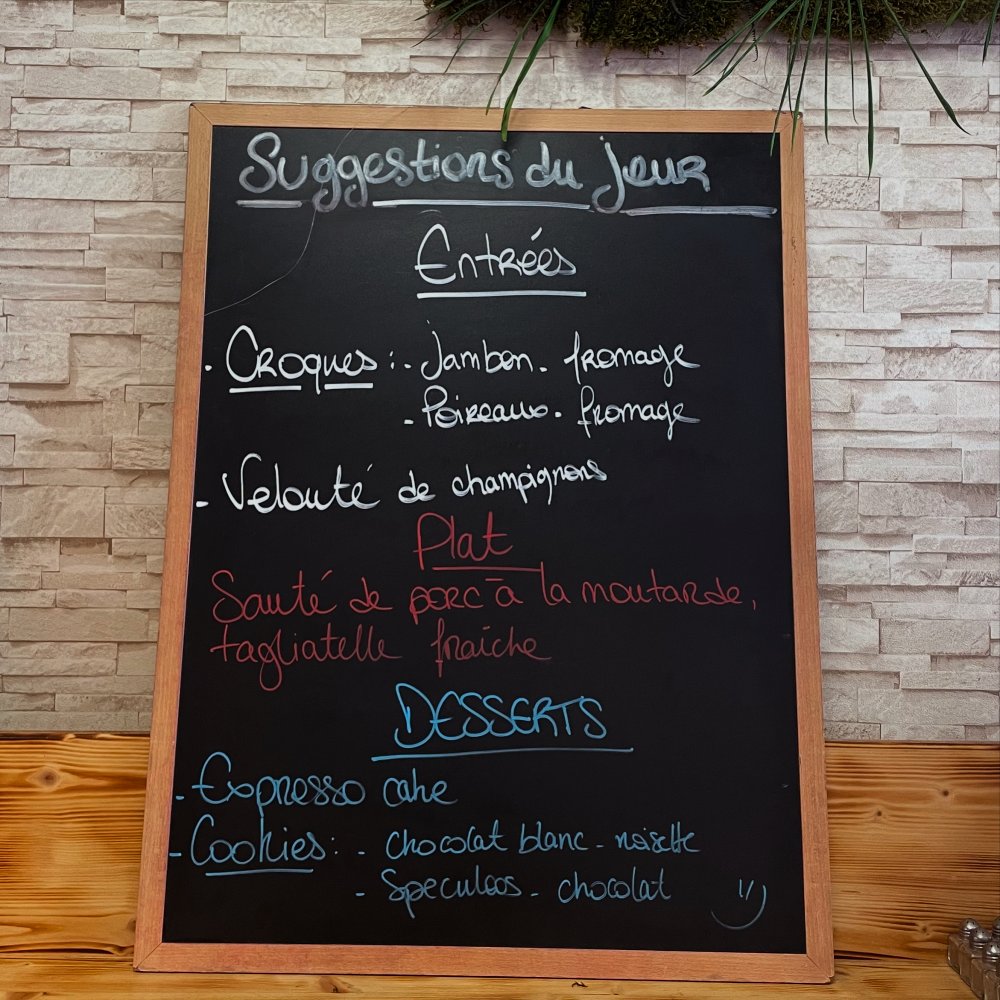 Suggestions du jour
Entrées
- Croques : - Jambon - fromage
- Poireaux - fromage
- Velouté de champignons
Plat
Sauté de porc à la moutarde,
tagliatelle fraiche
DESSERTS
- Expresso cake
- Cookies : - chocolat blanc - noisette
- Speculoos - chocolat